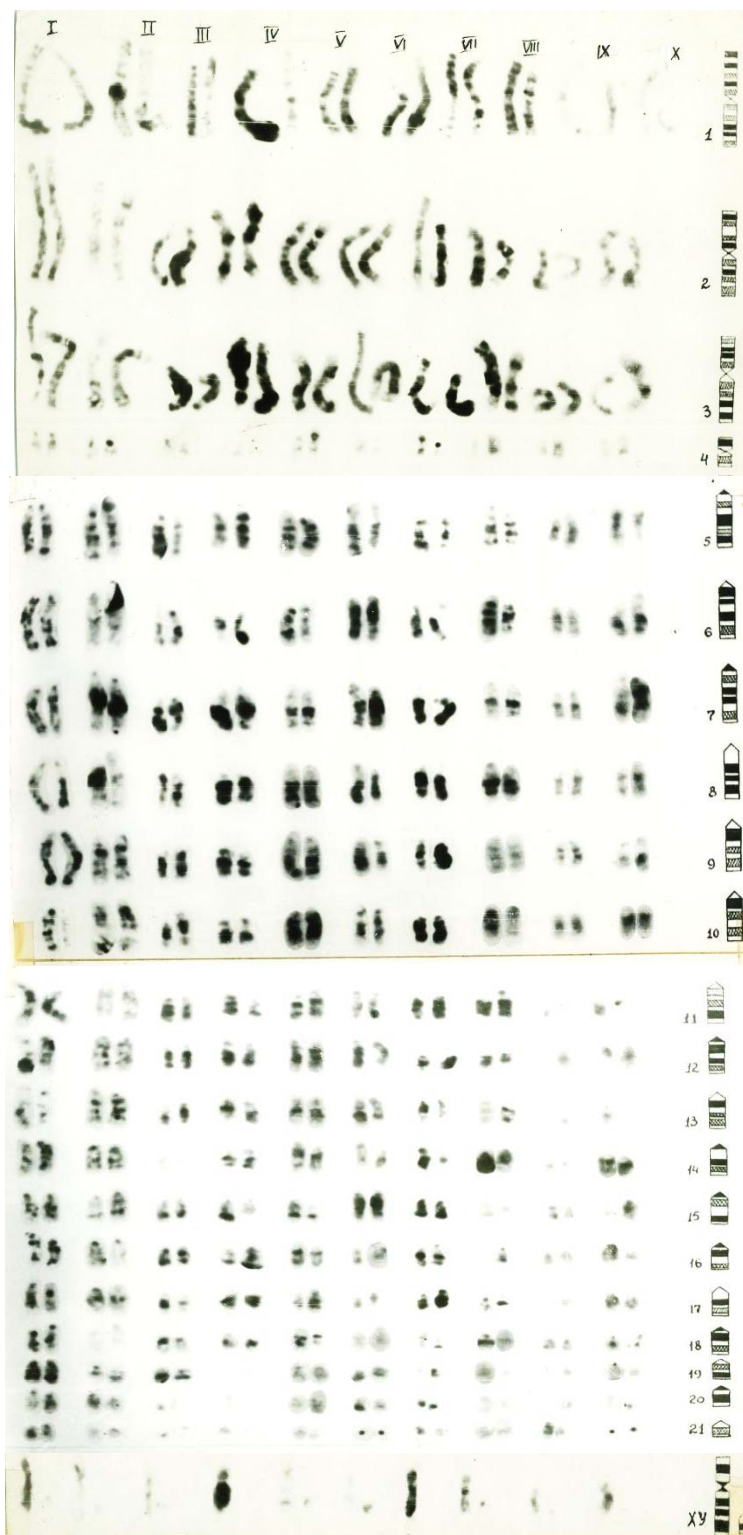 I II III IV V VI VII VIII IX X
1
2
3
4
5
6
7
8
9
10
11
12
13
14
15
16
17
18
19
20
21
XY